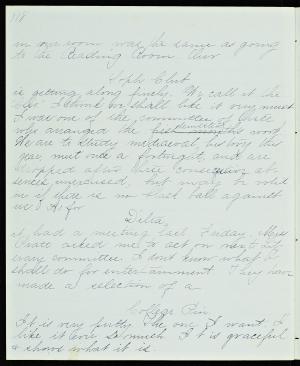 118
in our room was the same as going
to the Reading Room. Our
Soph. Club
is getting along finely. We call it the
I think we shall like it very much
I was one of the committee of three
who arranged the
We are to study mediaeval history this
year, meet once a fortnight, and are
dropped after three consecutive ab-
sences, unexcused, but may be voted
in if there is no black ball against
us. As for
Delta,
it had a meeting last Friday. Miss
asked me to act on next
erary committee. I don't know what I
shall do for entertainment. They have
made a selection of a
College Pin
It is very pretty the one I want. I
like it ever so much. It is graceful
& shows what it is.